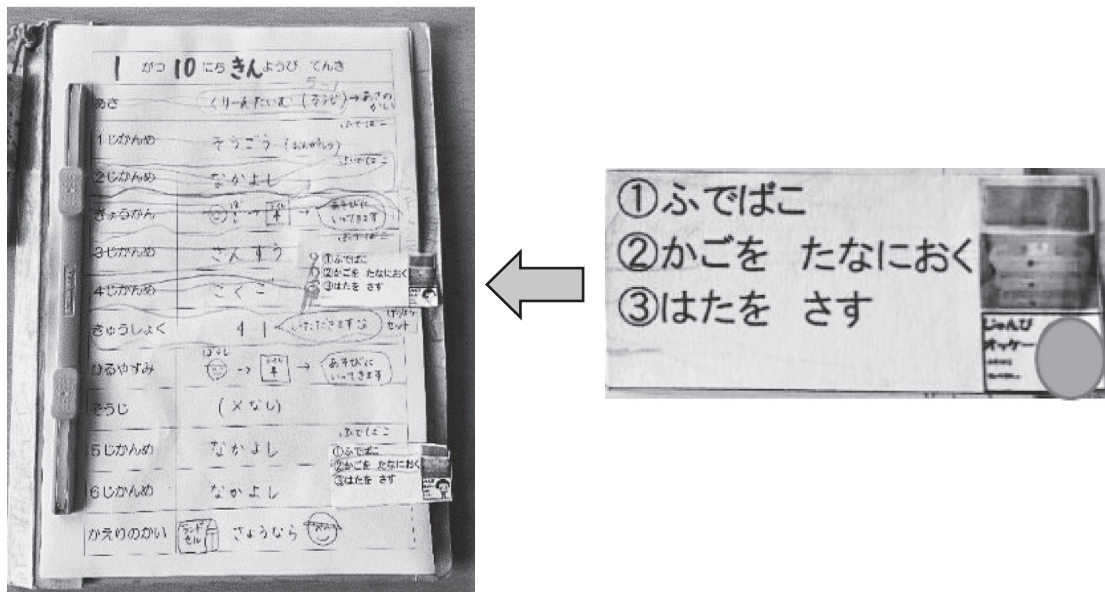 1 がつ 10 にち きんようび てんき
5-1
あさ くりーんたいむ → あさのかい
ふでばこ
1じかんめ そうごう
ふでばこ
2じかんめ なかよし
ぎょうかん → トイレ → あそびに いってきます
ふでばこ
3じかんめ さんすう
①ふでばこ
②かごを たなにおく
③はたを さす
4じかんめ こくご
きゅうしょく 4-1 いただきます セット
ひるやすみ ぼうし → トイレ → あそびに いってきます
そうじ (×なし)
ふでばこ
5じかんめ なかよし
①ふでばこ
②かごを たなにおく
③はたを さす
6じかんめ なかよし
かえりのかい ランドセル さようなら
①ふでばこ
②かごを たなにおく
③はたを さす
じゅんび
オッケー